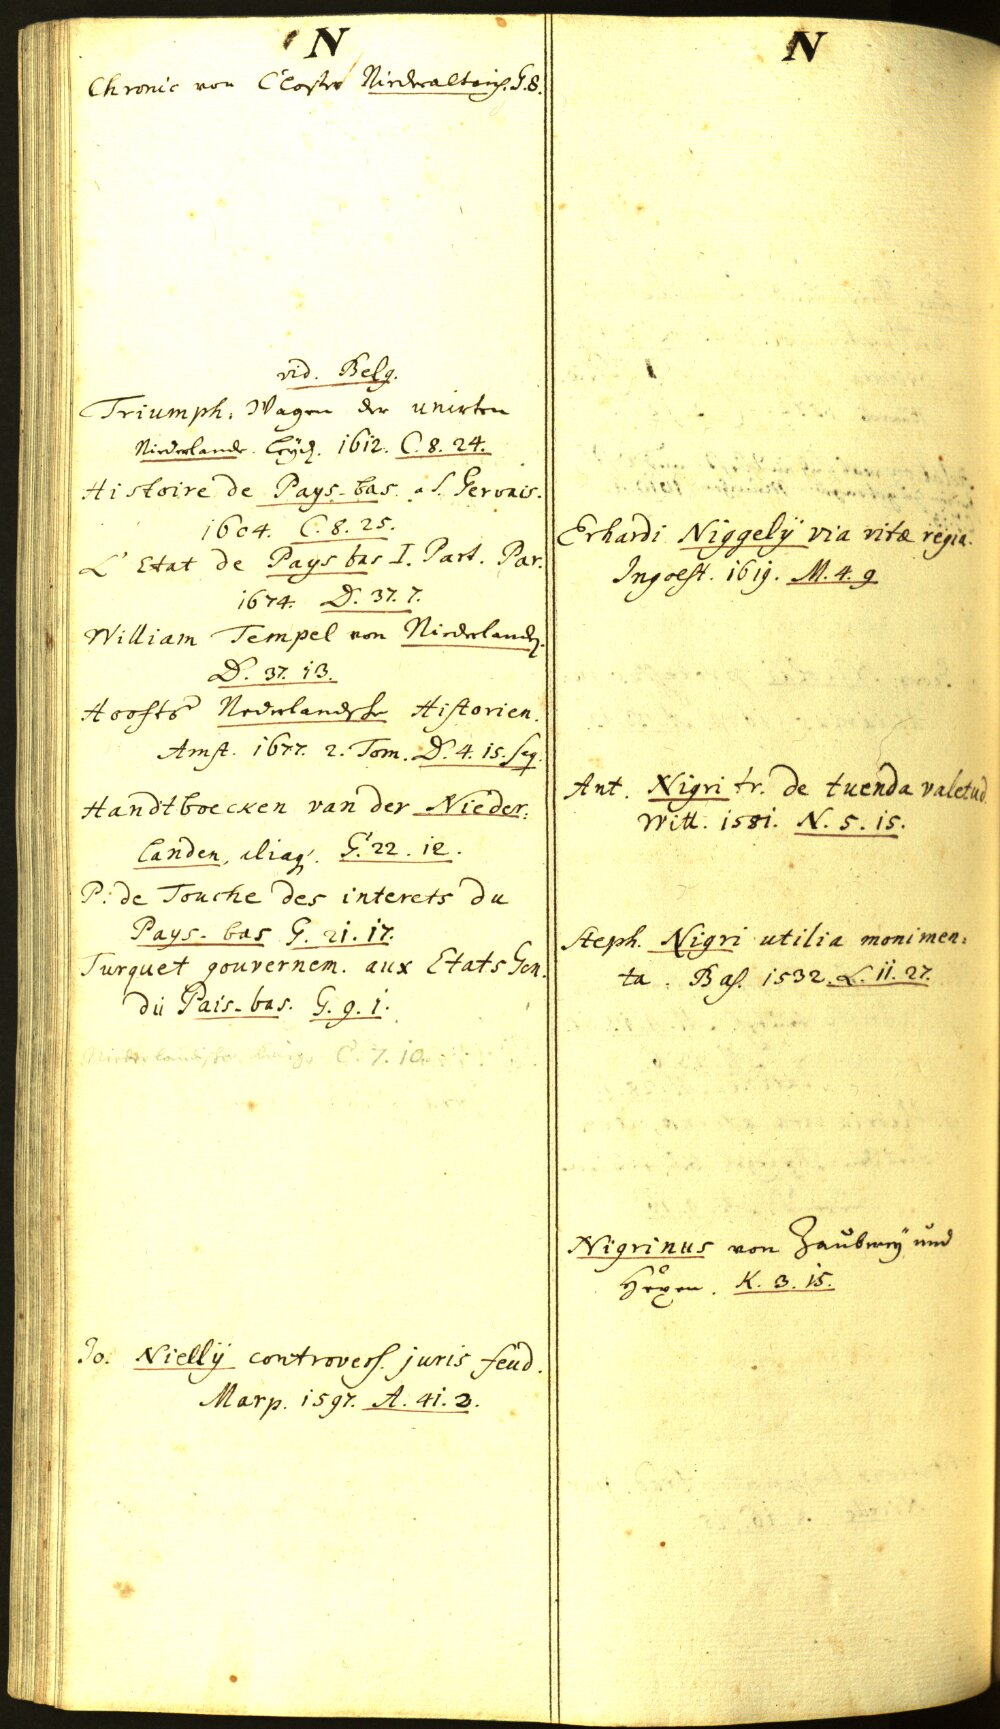 N
Chronic von Closter Niederalteich. G. 8.
vid. Belg.
Triumph: Wagen der unirten
Niederlande. Leyd. 1612. C. 8. 24.
Histoire de Pays-bas. a S. Gervais.
1604. C. 8. 25.
L'Etat de Pays bas I. Part. Par.
1674. D. 37. 7.
William Tempel von Niederland.
D. 37. 13.
Hoofts Nederlandsche Historien.
Amst. 1677. 2. Tom. D. 4. 15. seq.
Handtboecken van der Nieder:
landen, aliaq. G. 22. 12.
P: de Touche des interets du
Pays-bas G. 21. 17.
Turquet gouvernem. aux Etats Gen.
du Pais-bas. G. 9. 1.
C. 7. 10
Jo. Nielly controvers. juris feud.
Marp. 1597. A. 41. 2.
N
Erhardi Niggely via vitæ regia.
Ingolst. 1619. M. 4. 9
Ant. Nigri tr. de tuenda valetud.
Witt. 1581. N. 5. 15.
Steph. Nigri utilia monimen:
ta. Bas. 1532. L. 11. 27.
Nigrinus von Zauberey und
Hexen. K. 3. 15.